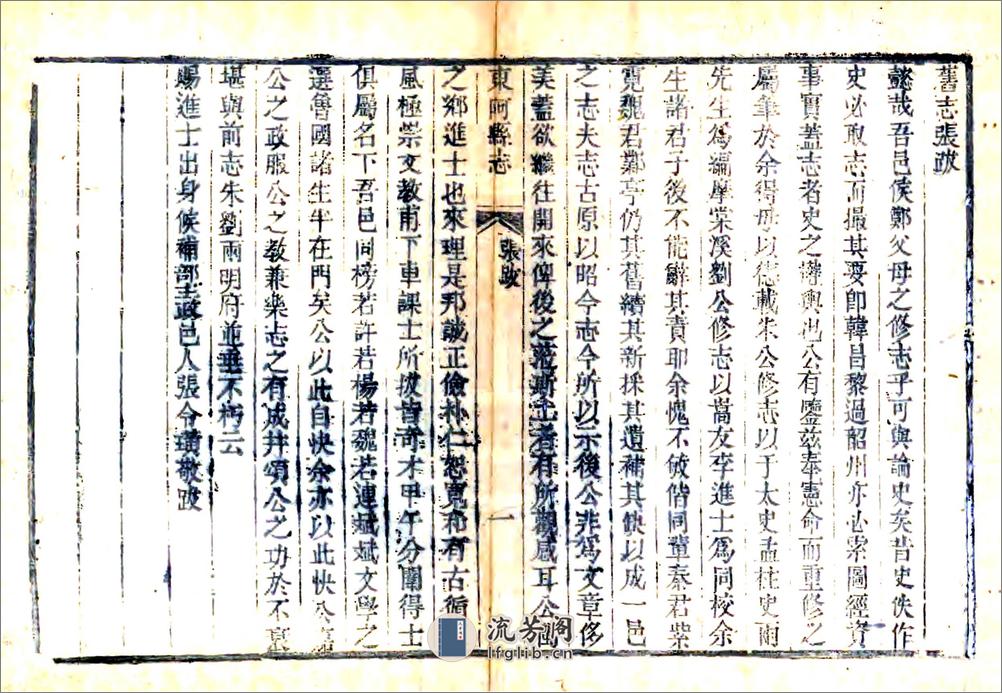 舊志張跋
懿哉吾邑侯鄭父母之修志乎可與論史矣昔史佚作
史必取志而撮其要即韓昌黎過韶州亦必索圖經資
事實蓋志者史之權輿也公有鑒茲奉憲命而重修之
屬筆於余得毋以德載朱公修志以于太史孟柱史兩
先生為編摩棠溪劉公修志以嵩友李進士為同校余
生諸君子後不能辭其責耶余愧不敏偕同輩秦君紫
寬魏君鄴亭仍其舊續其新採其遺補其缺以成一邑
之志夫志古原以昭今志今所以示後公非為文章侈
美蓋欲繼往開來俾後之蒞斯土者有所觀感耳公
東阿縣志
張跋
一
之鄉進士也來理是邦誠正儉朴仁恕寬和有古循
風極崇文教甫下車課士所拔皆奇才甲午分闈得士
俱屬名下吾邑同榜若許若楊若魏若連斌斌文學之
選魯國諸生半在門矣公以此自快余亦以此快公
公之政服公之教兼樂志之有成并頌公之功於不
堪與前志朱劉兩明府並垂不朽云
賜進士出身候補部主政邑人張令璜敬跋
流芳閣
lfglib.cn